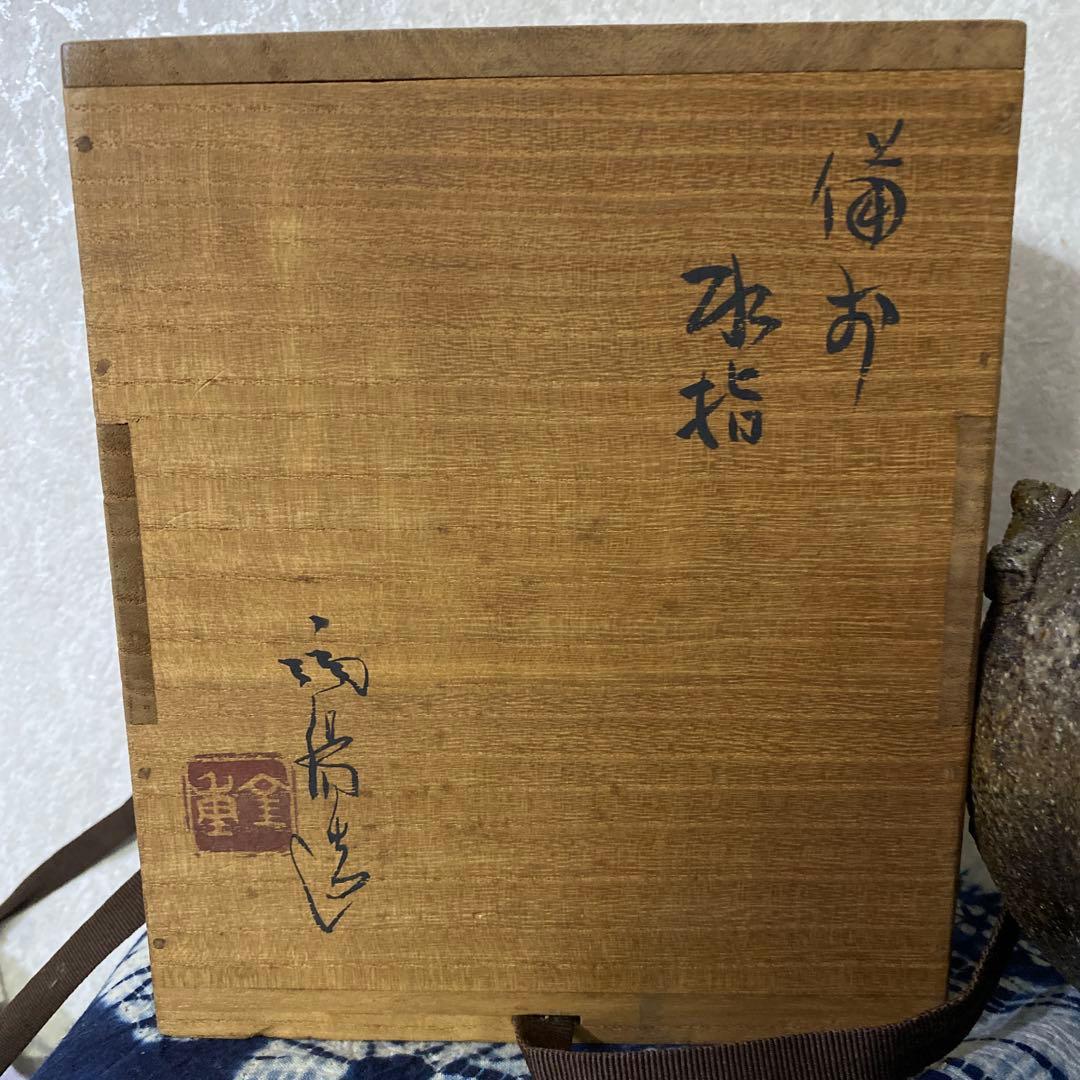 備前
水指
陶陽造
金重